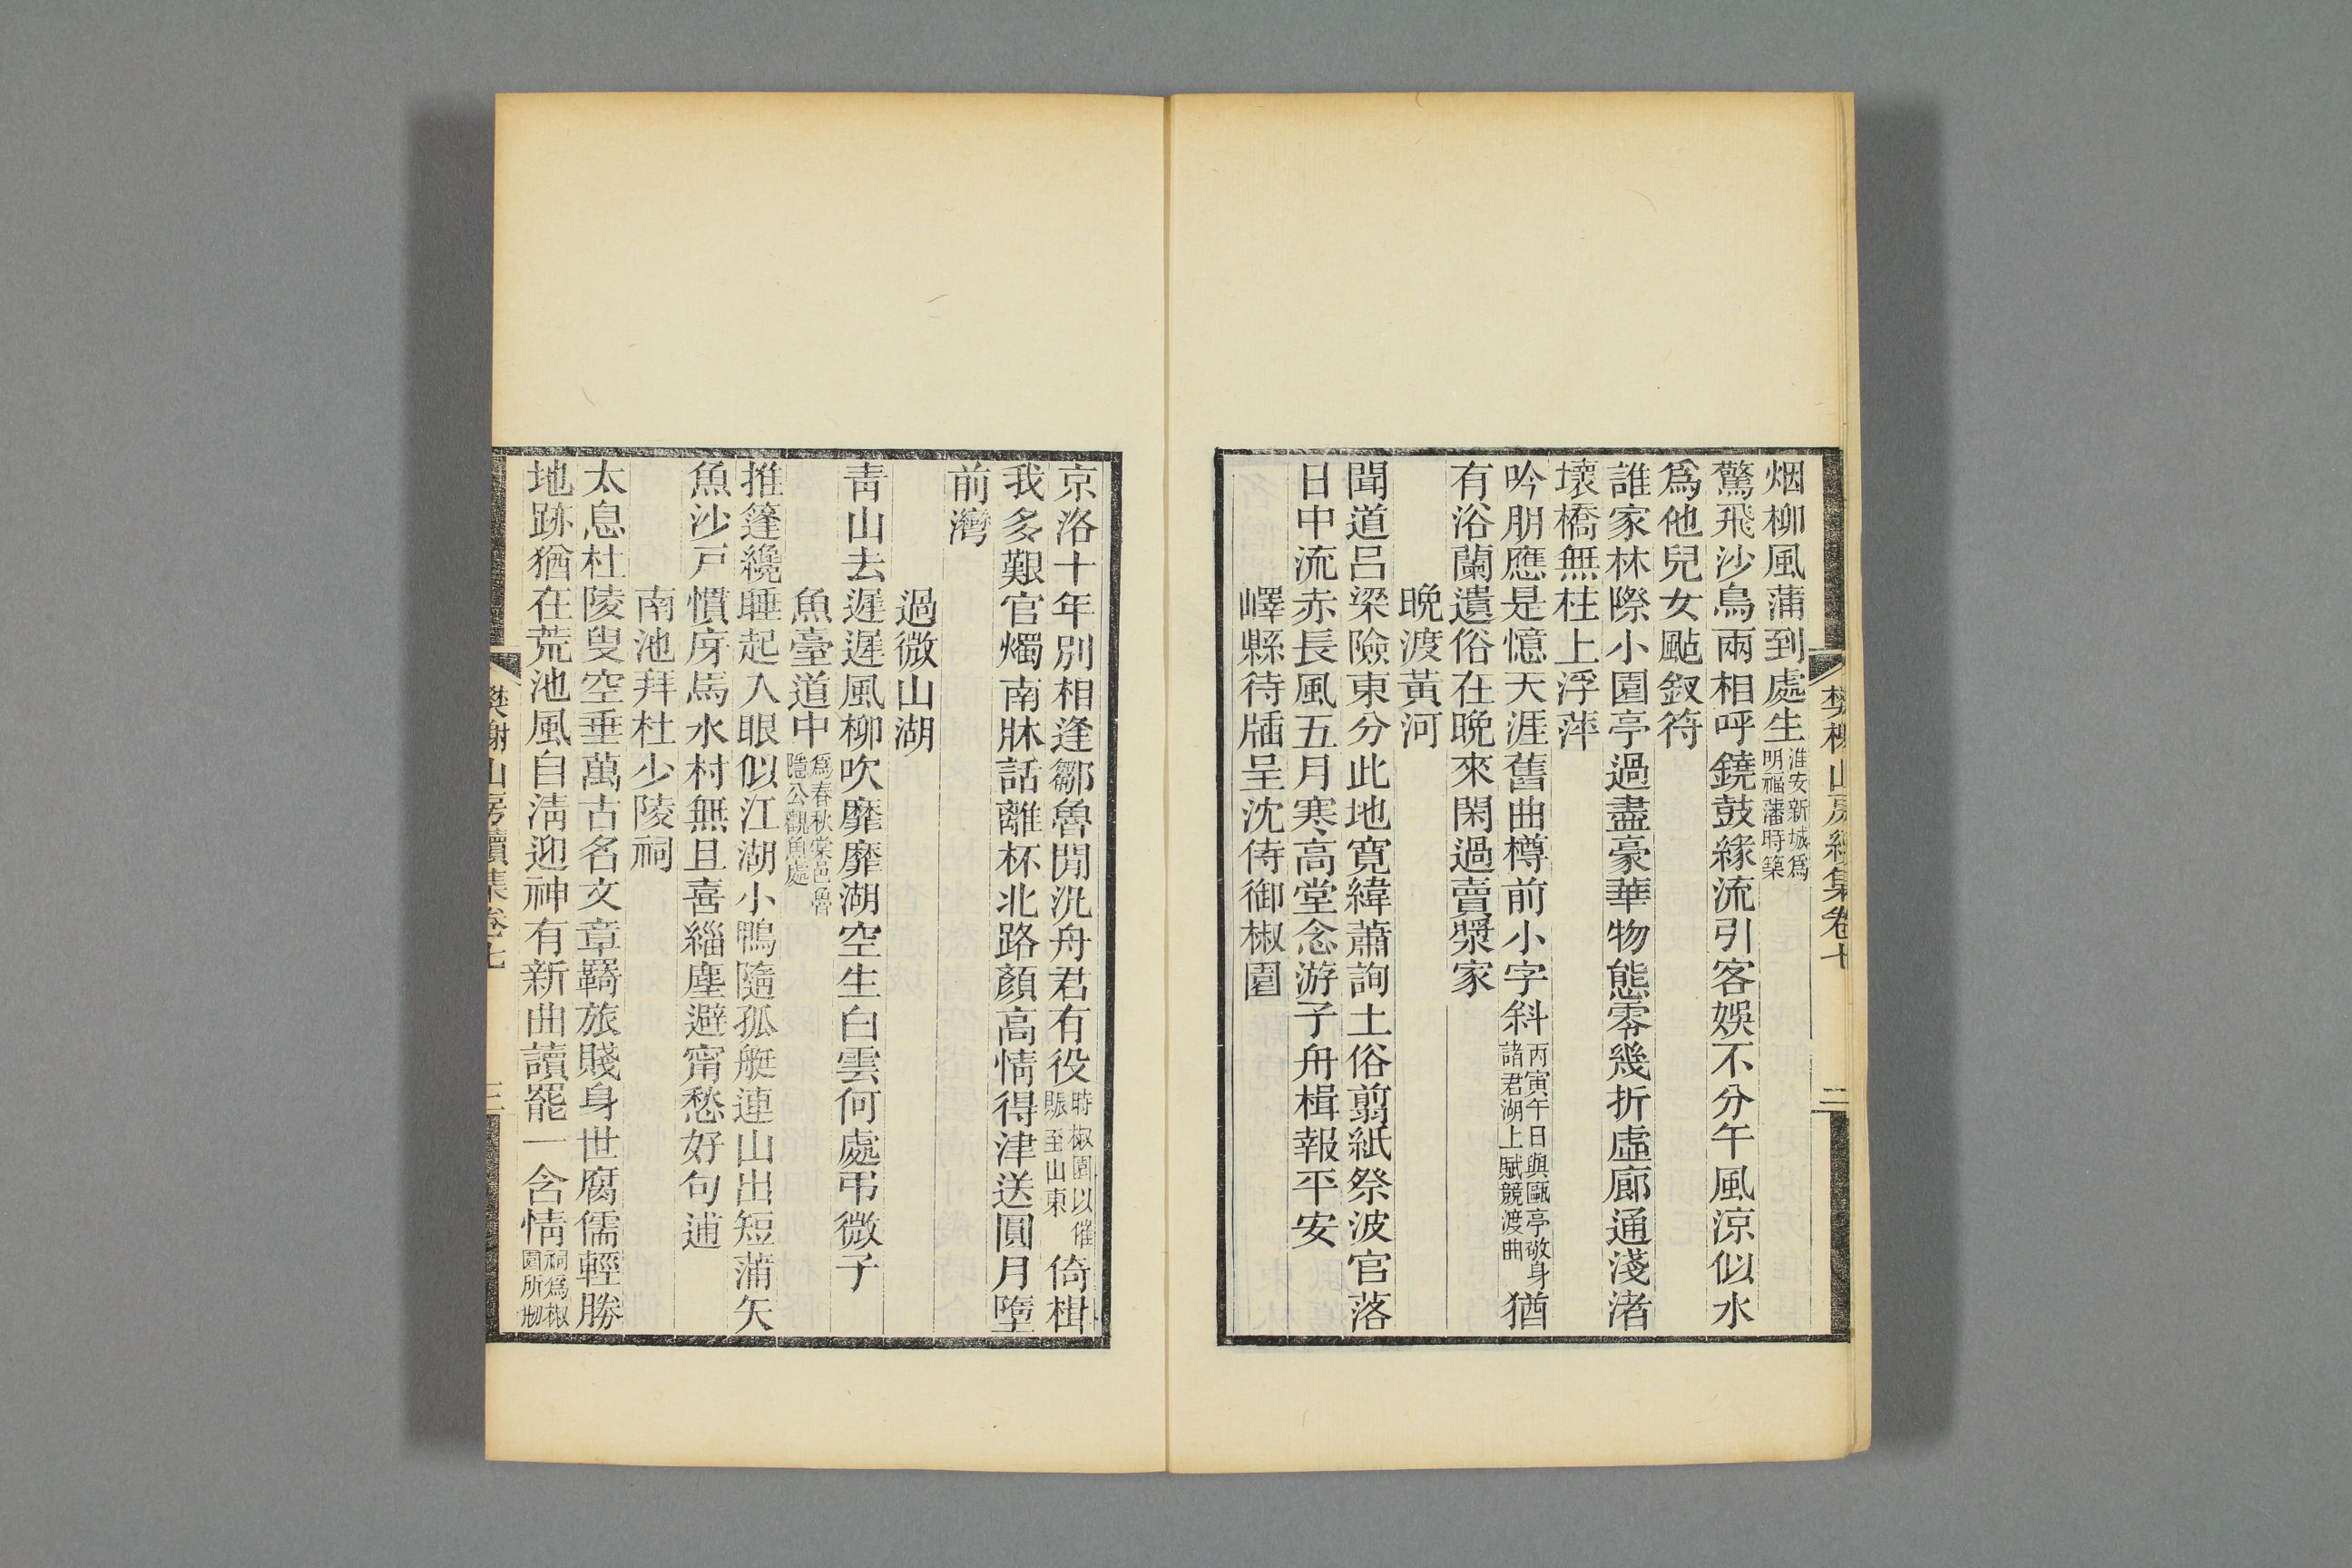 烟柳風蒲到處生淮安新城爲明福藩時築
驚飛沙鳥兩相呼鐃鼓緣流引客娛不分午風涼似水
爲他兒女颭釵符
誰家林際小園亭過盡豪華物態零幾折虛廊通淺渚
壞橋無柱上浮萍
吟朋應是憶天涯舊曲樽前小字斜丙寅午日與甌亭敬身諸君湖上賦競渡曲猶
有浴蘭遺俗在晚來閑過賣漿家
晚渡黃河
聞道呂梁險東分此地寬緯蕭詢土俗翦紙祭波官落
日中流赤長風五月寒高堂念游子舟楫報平安
嶧縣待牐呈沈侍御椒園
京洛十年別相逢鄒魯閒況舟君有役時椒園以催賑至山東倚楫
我多艱官燭南牀話離杯北路顏高情得津送圓月墮
前灣
過微山湖
青山去遲遲風柳吹靡靡湖空生白雲何處弔微子
魚臺道中爲春秋棠邑魯隱公觀魚處
推篷纔睡起入眼似江湖小鴨隨孤艇連山出短蒲矢
魚沙戸慣㡿馬水村無且喜緇塵避甯愁好句逋
南池拜杜少陵祠
太息杜陵叟空垂萬古名文章羇旅賤身世腐儒輕勝
地跡猶在荒池風自淸迎神有新曲讀罷一含情祠爲椒園所刱
樊榭山房續集卷七
二
樊榭山房續集卷七
三